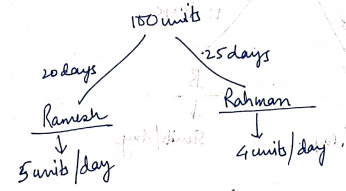 100 units
20 days
25 days
Ramesh
Rahman
5 units/day
4 units/day